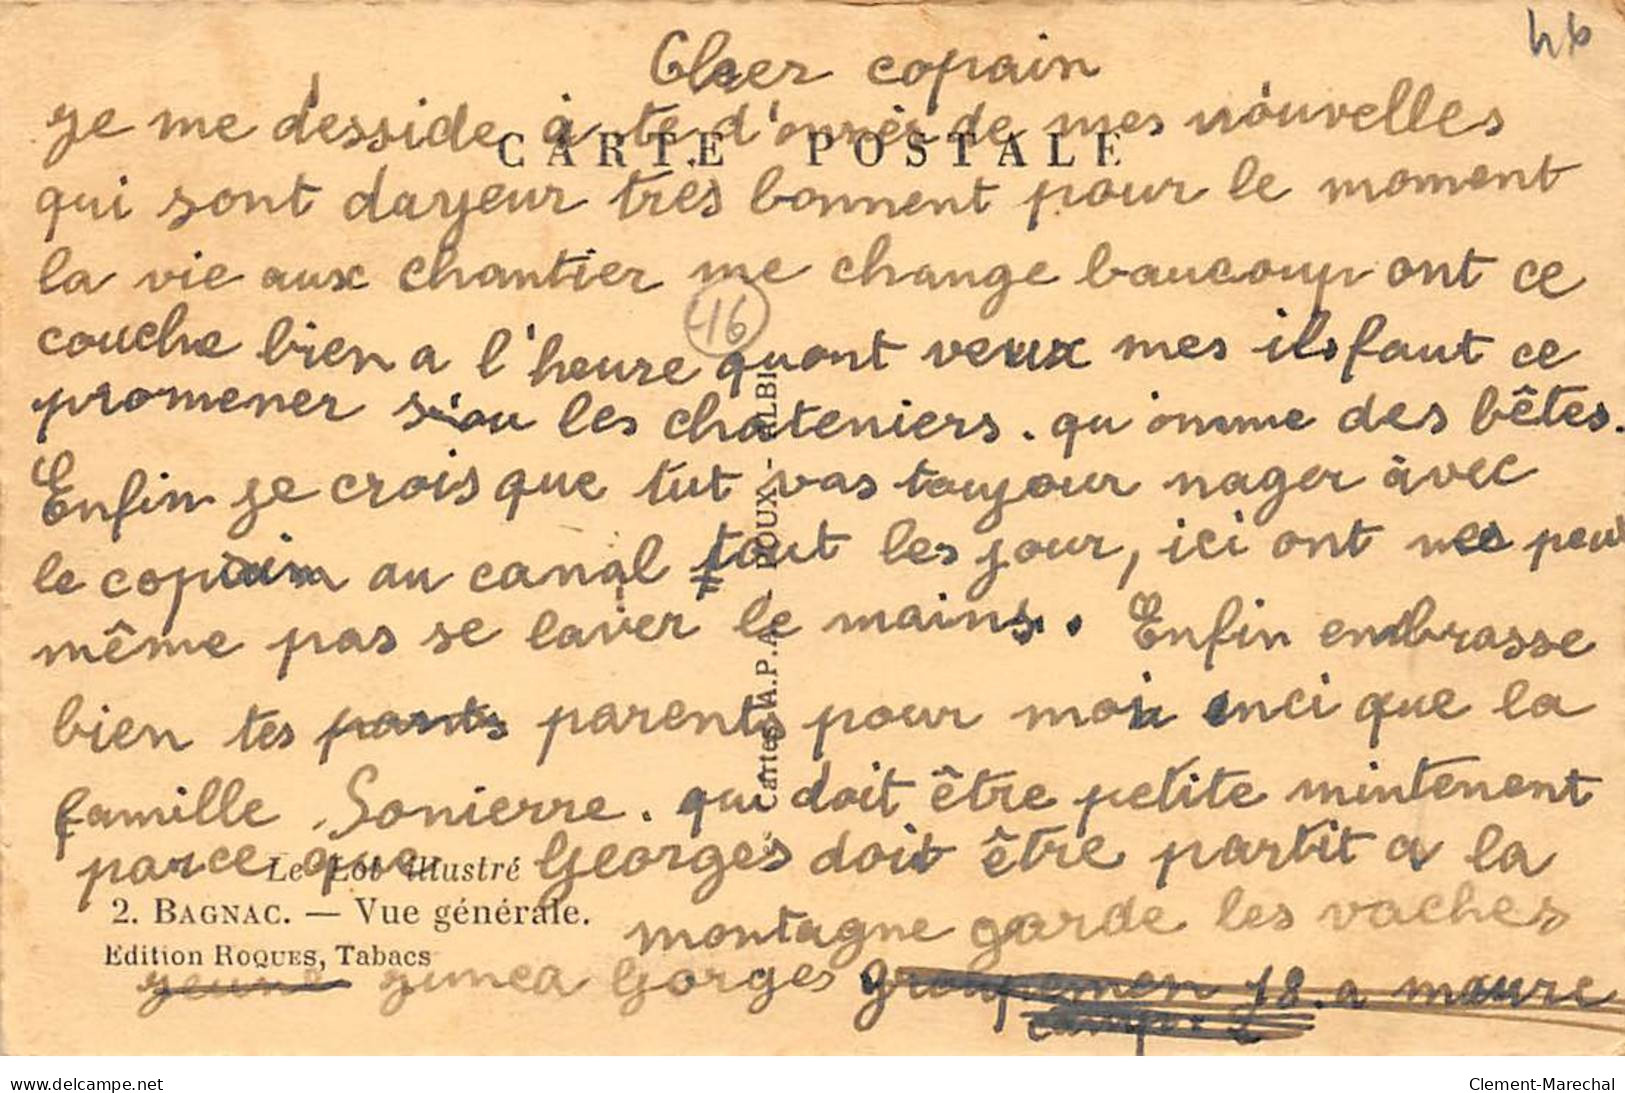 46
Cher copain
je me desside à te d'onnés de mes nouvelles
CARTE POSTALE
qui sont dayeur très bonnent pour le moment
la vie aux chantier me change baucoup ont ce
16
couche bien a l'heure quont veux mes ils faut ce
promener s'ou les chateniers. qu'omme des bêtes.
Enfin je crois que tut vas toujour nager àvec
le copain au canal tout les jour, ici ont nes peut
même pas se laver le mains. Enfin embrasse
bien tes parents parents pour moi inci que la
famille Sonierre. qui doit être petite mintenent
parce que Georges doit être partit a la
montagne garde les vaches
Cartes A.P.A. - POUX - ALBI
Le Lot illustré
2. BAGNAC. — Vue générale.
Edition ROQUES, Tabacs
Gorges groupemen 18. a maurc
camp.
delcampe.net
Clement-Marechal